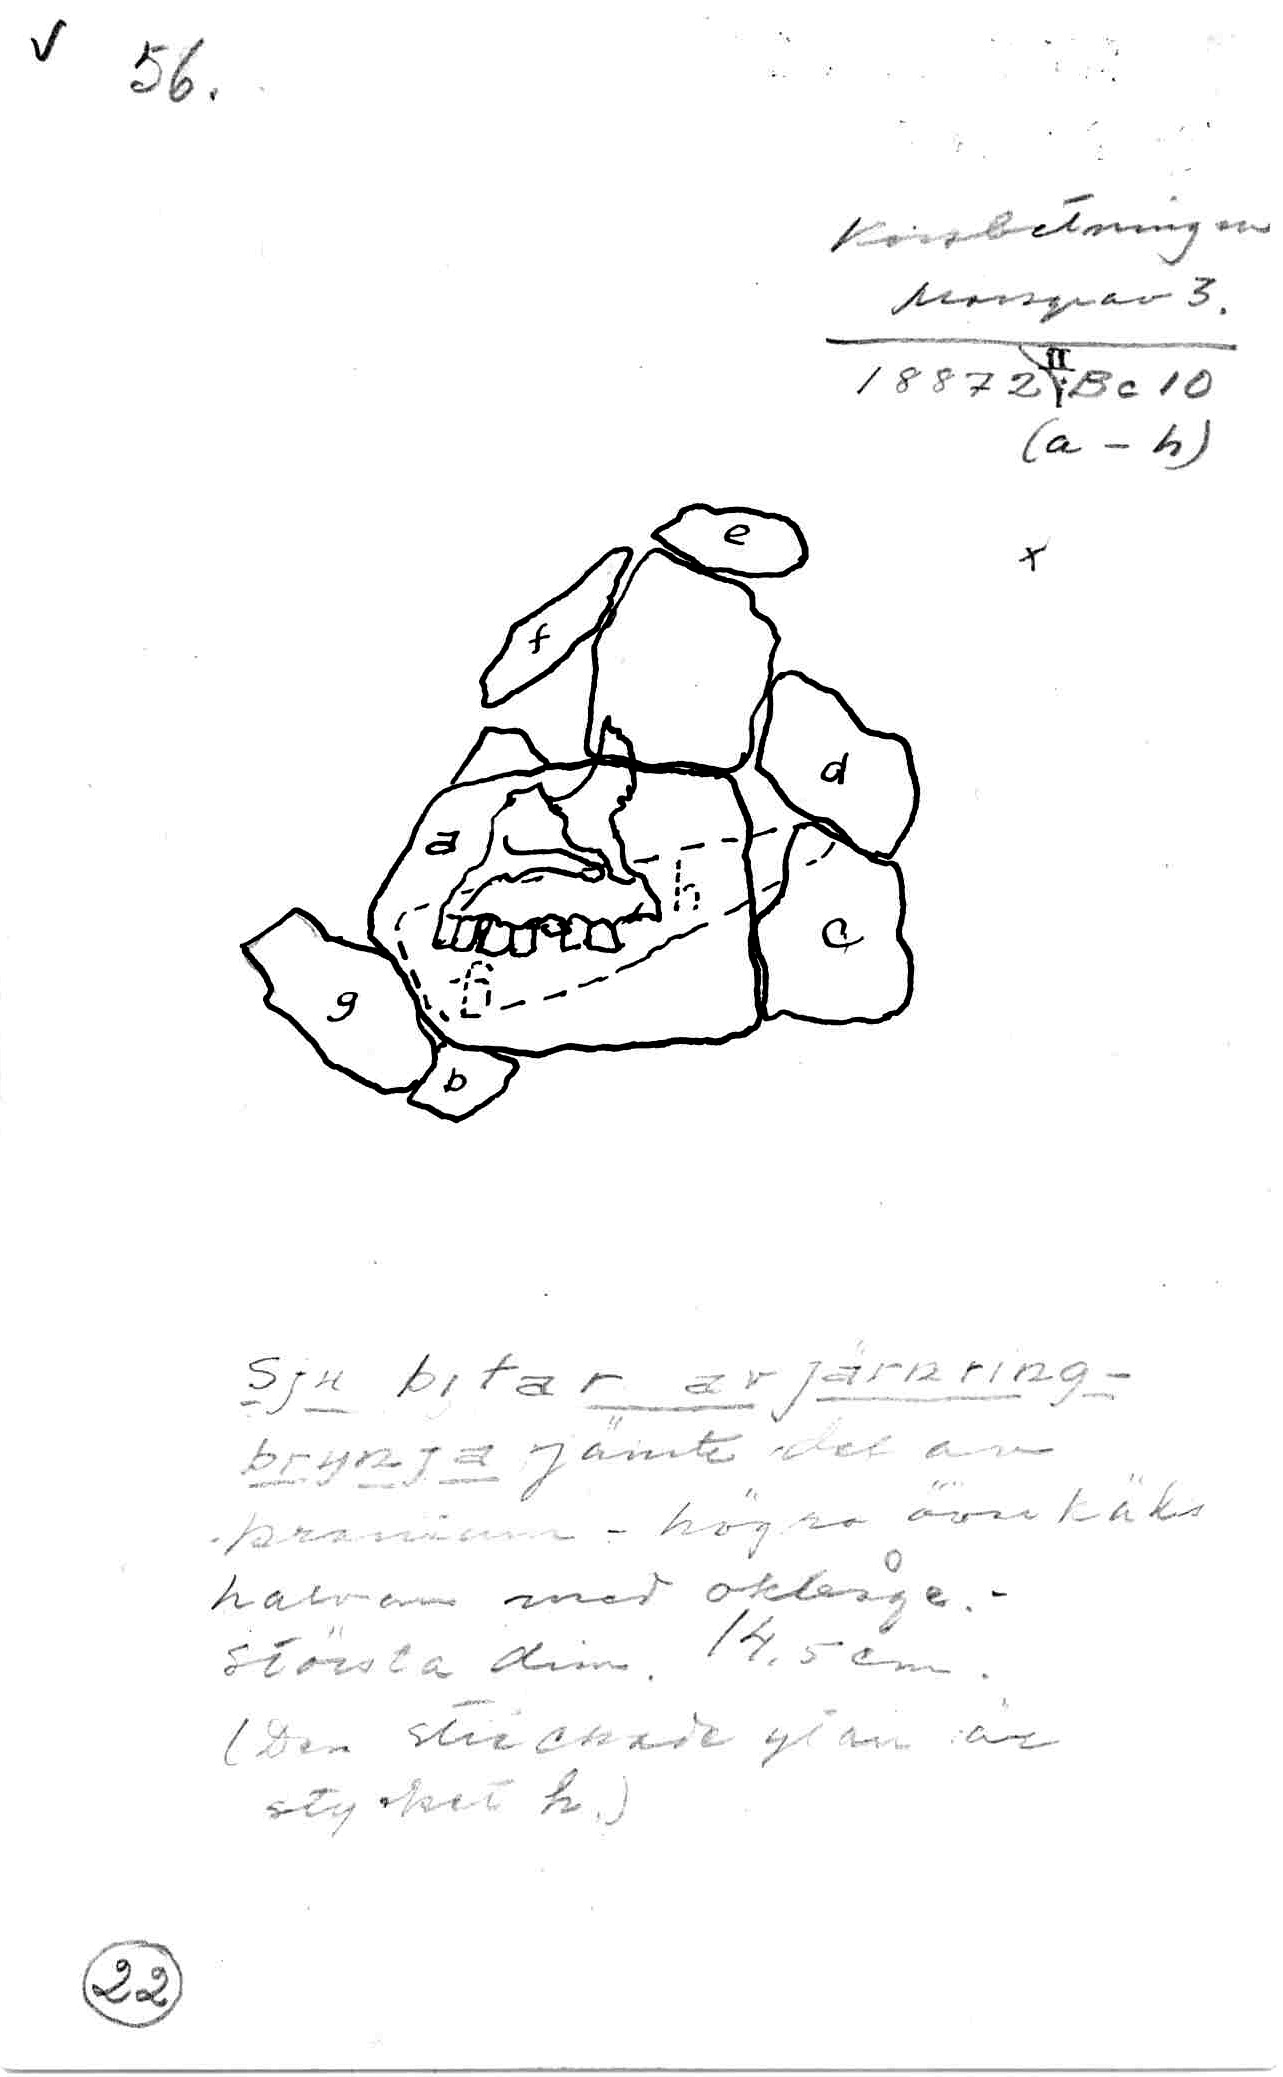 ✓ 56.
Korsbetningen
Massgrav 3.
18872 II:Bc 10
(a – h)
x
e
f
d
a
h
c
g
h
b
Sju bitar av järnring-
brynja jämte del av
kranium – högra överkäks
halvan med okbåge. -
största dim. 14,5 cm.
(Den sträckade ytan är
stycket h.)
22